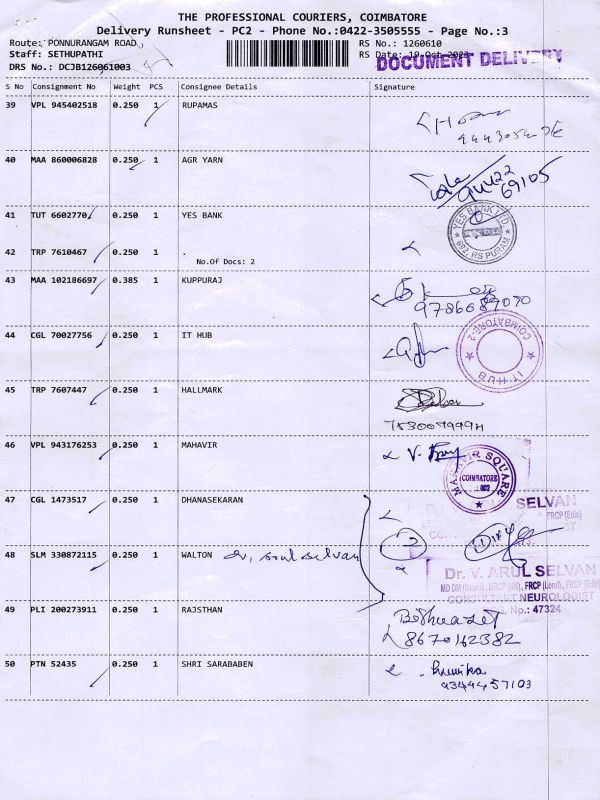 THE PROFESSIONAL COURIERS, COIMBATORE
Delivery Runsheet - PC2 - Phone No.:0422-3505555 - Page No.:3
Route: PONNURANGAM ROAD
RS No.: 1260610
Staff: SETHUPATHI
RS Date:
DOCUMENT DELIVERY
DRS No.: DCJB126061003
S No Consignment No Weight PCS Consignee Details Signature
39 VPL 945402518 0.250 1 RUPAMAS
40 MAA 860006828 0.250 1 AGR YARN
69105
41 TUT 6602770 0.250 1 YES BANK
YES BANK LTD
692, RS PURAM
42 TRP 7610467 0.250 1 .
No.Of Docs: 2
43 MAA 102186697 0.385 1 KUPPURAJ
9786687070
44 CGL 70027756 0.250 1 IT HUB
COIMBATORE-2
IT HUB
45 TRP 7607447 0.250 1 HALLMARK
46 VPL 943176253 0.250 1 MAHAVIR
SQUARE
COIMBATORE
47 CGL 1473517 0.250 1 DHANASEKARAN
SELVAN
FRCP (Edin)
48 SLM 330872115 0.250 1 WALTON Dr. V. Arul Selvan
Dr. V. ARUL SELVAN
MD DM (Neuro), MRCP (UK), FRCP (Lond), FRCP (Edin)
CONSULTANT NEUROLOGIST
No.: 47324
49 PLI 200273911 0.250 1 RAJSTHAN
8670162382
50 PTN 52435 0.250 1 SHRI SARABABEN
9344457103